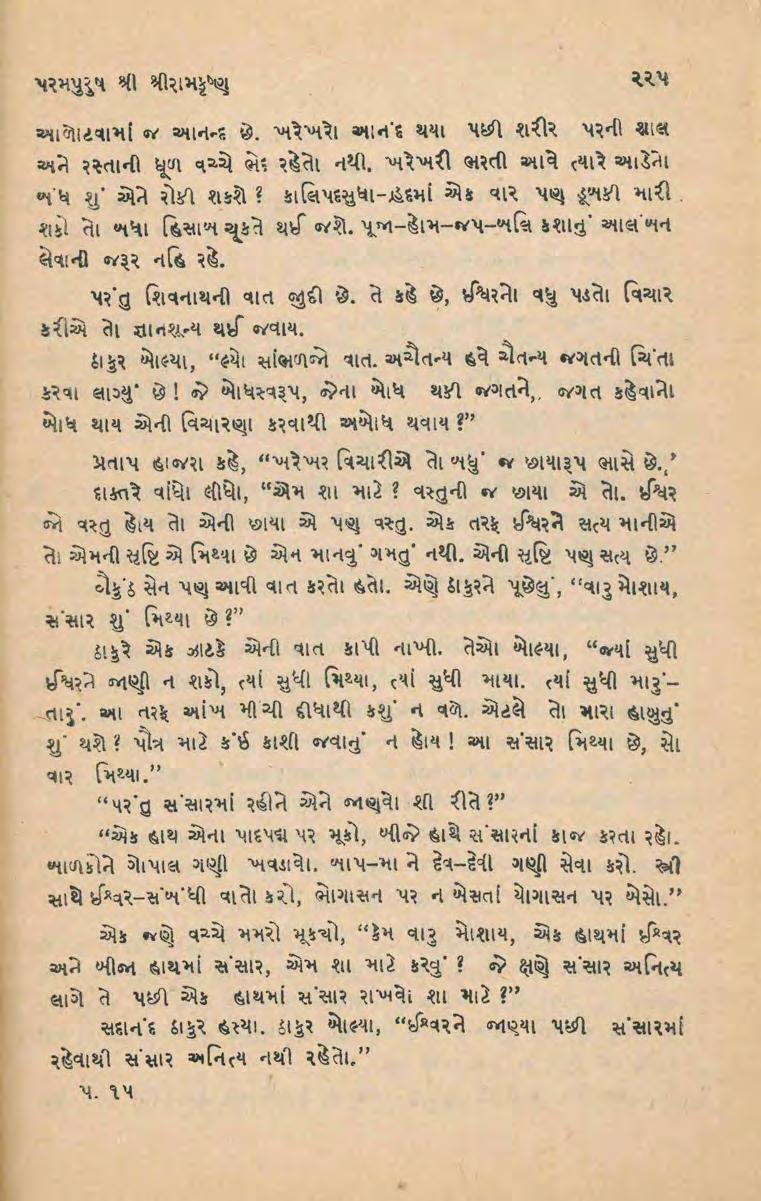 પરમપુરુષ શ્રી શ્રીરામકૃષ્ણ ૨૨૫
આળોટવામાં જ આનન્દ છે. ખરેખરો આનંદ થયા પછી શરીર પરની શાલ
અને રસ્તાની ધૂળ વચ્ચે ભેદ રહેતો નથી. ખરેખરી ભરતી આવે ત્યારે આડેનો
બંધ શું એને રોકી શકશે ? કાલિપદસુધા-હ્રદમાં એક વાર પણ ડૂબકી મારી
શકો તો બધા હિસાબ ચૂકતે થઈ જશે. પૂજા–હોમ–જપ–બલિ કશાનું આલંબન
લેવાની જરૂર નહિ રહે.
પરંતુ શિવનાથની વાત જુદી છે. તે કહે છે, ઈશ્વરનો વધુ પડતો વિચાર
કરીએ તો જ્ઞાનશૂન્ય થઈ જવાય.
ઠાકુર બોલ્યા, “લ્યો સાંભળજો વાત. અચૈતન્ય હવે ચૈતન્ય જગતની ચિંતા
કરવા લાગ્યું છે ! જે બોધસ્વરૂપ, જેના બોધ થકી જગતને, જગત કહેવાનો
બોધ થાય એની વિચારણા કરવાથી અબોધ થવાય ?”
પ્રતાપ હાજરા કહે, “ખરેખર વિચારીએ તો બધું જ છાયારૂપ ભાસે છે.’
દાક્તરે વાંધો લીધો, “એમ શા માટે ? વસ્તુની જ છાયા એ તો. ઈશ્વર
જો વસ્તુ હોય તો એની છાયા એ પણ વસ્તુ. એક તરફ ઈશ્વરને સત્ય માનીએ
તો એમની સૃષ્ટિ એ મિથ્યા છે એમ માનવું ગમતું નથી. એની સૃષ્ટિ પણ સત્ય છે.”
વૈકુંઠ સેન પણ આવી વાત કરતો હતો. એણે ઠાકુરને પૂછેલું, “વારુ મોશાય,
સંસાર શું મિથ્યા છે ?”
ઠાકુરે એક ઝાટકે એની વાત કાપી નાખી. તેઓ બોલ્યા, “જ્યાં સુધી
ઈશ્વરને જાણી ન શકો, ત્યાં સુધી મિથ્યા, ત્યાં સુધી માયા. ત્યાં સુધી મારું–
તારું. આ તરફ આંખ મીંચી દીધાથી કશું ન વળે. એટલે તો મારા હાબુનું
શું થશે ? પૌત્ર માટે કંઈ કાશી જવાનું ન હોય ! આ સંસાર મિથ્યા છે, સો
વાર મિથ્યા.”
“પરંતુ સંસારમાં રહીને એને જાણવો શી રીતે ?”
“એક હાથ એના પાદપદ્મ પર મૂકો, બીજે હાથે સંસારનાં કાજ કરતા રહો.
બાળકોને ગોપાલ ગણી ખવડાવો. બાપ–મા ને દેવ–દેવી ગણી સેવા કરો. સ્ત્રી
સાથે ઈશ્વર–સંબંધી વાતો કરો, ભોગાસન પર ન બેસતાં યોગાસન પર બેસો.”
એક જણે વચ્ચે મમરો મૂક્યો, “કેમ વારુ મોશાય, એક હાથમાં ઈશ્વર
અને બીજા હાથમાં સંસાર, એમ શા માટે કરવું ? જે ક્ષણે સંસાર અનિત્ય
લાગે તે પછી એક હાથમાં સંસાર રાખવો શા માટે ?”
સદાનંદ ઠાકુર હસ્યા. ઠાકુર બોલ્યા, “ઈશ્વરને જાણ્યા પછી સંસારમાં
રહેવાથી સંસાર અનિત્ય નથી રહેતો.”
પ. ૧૫